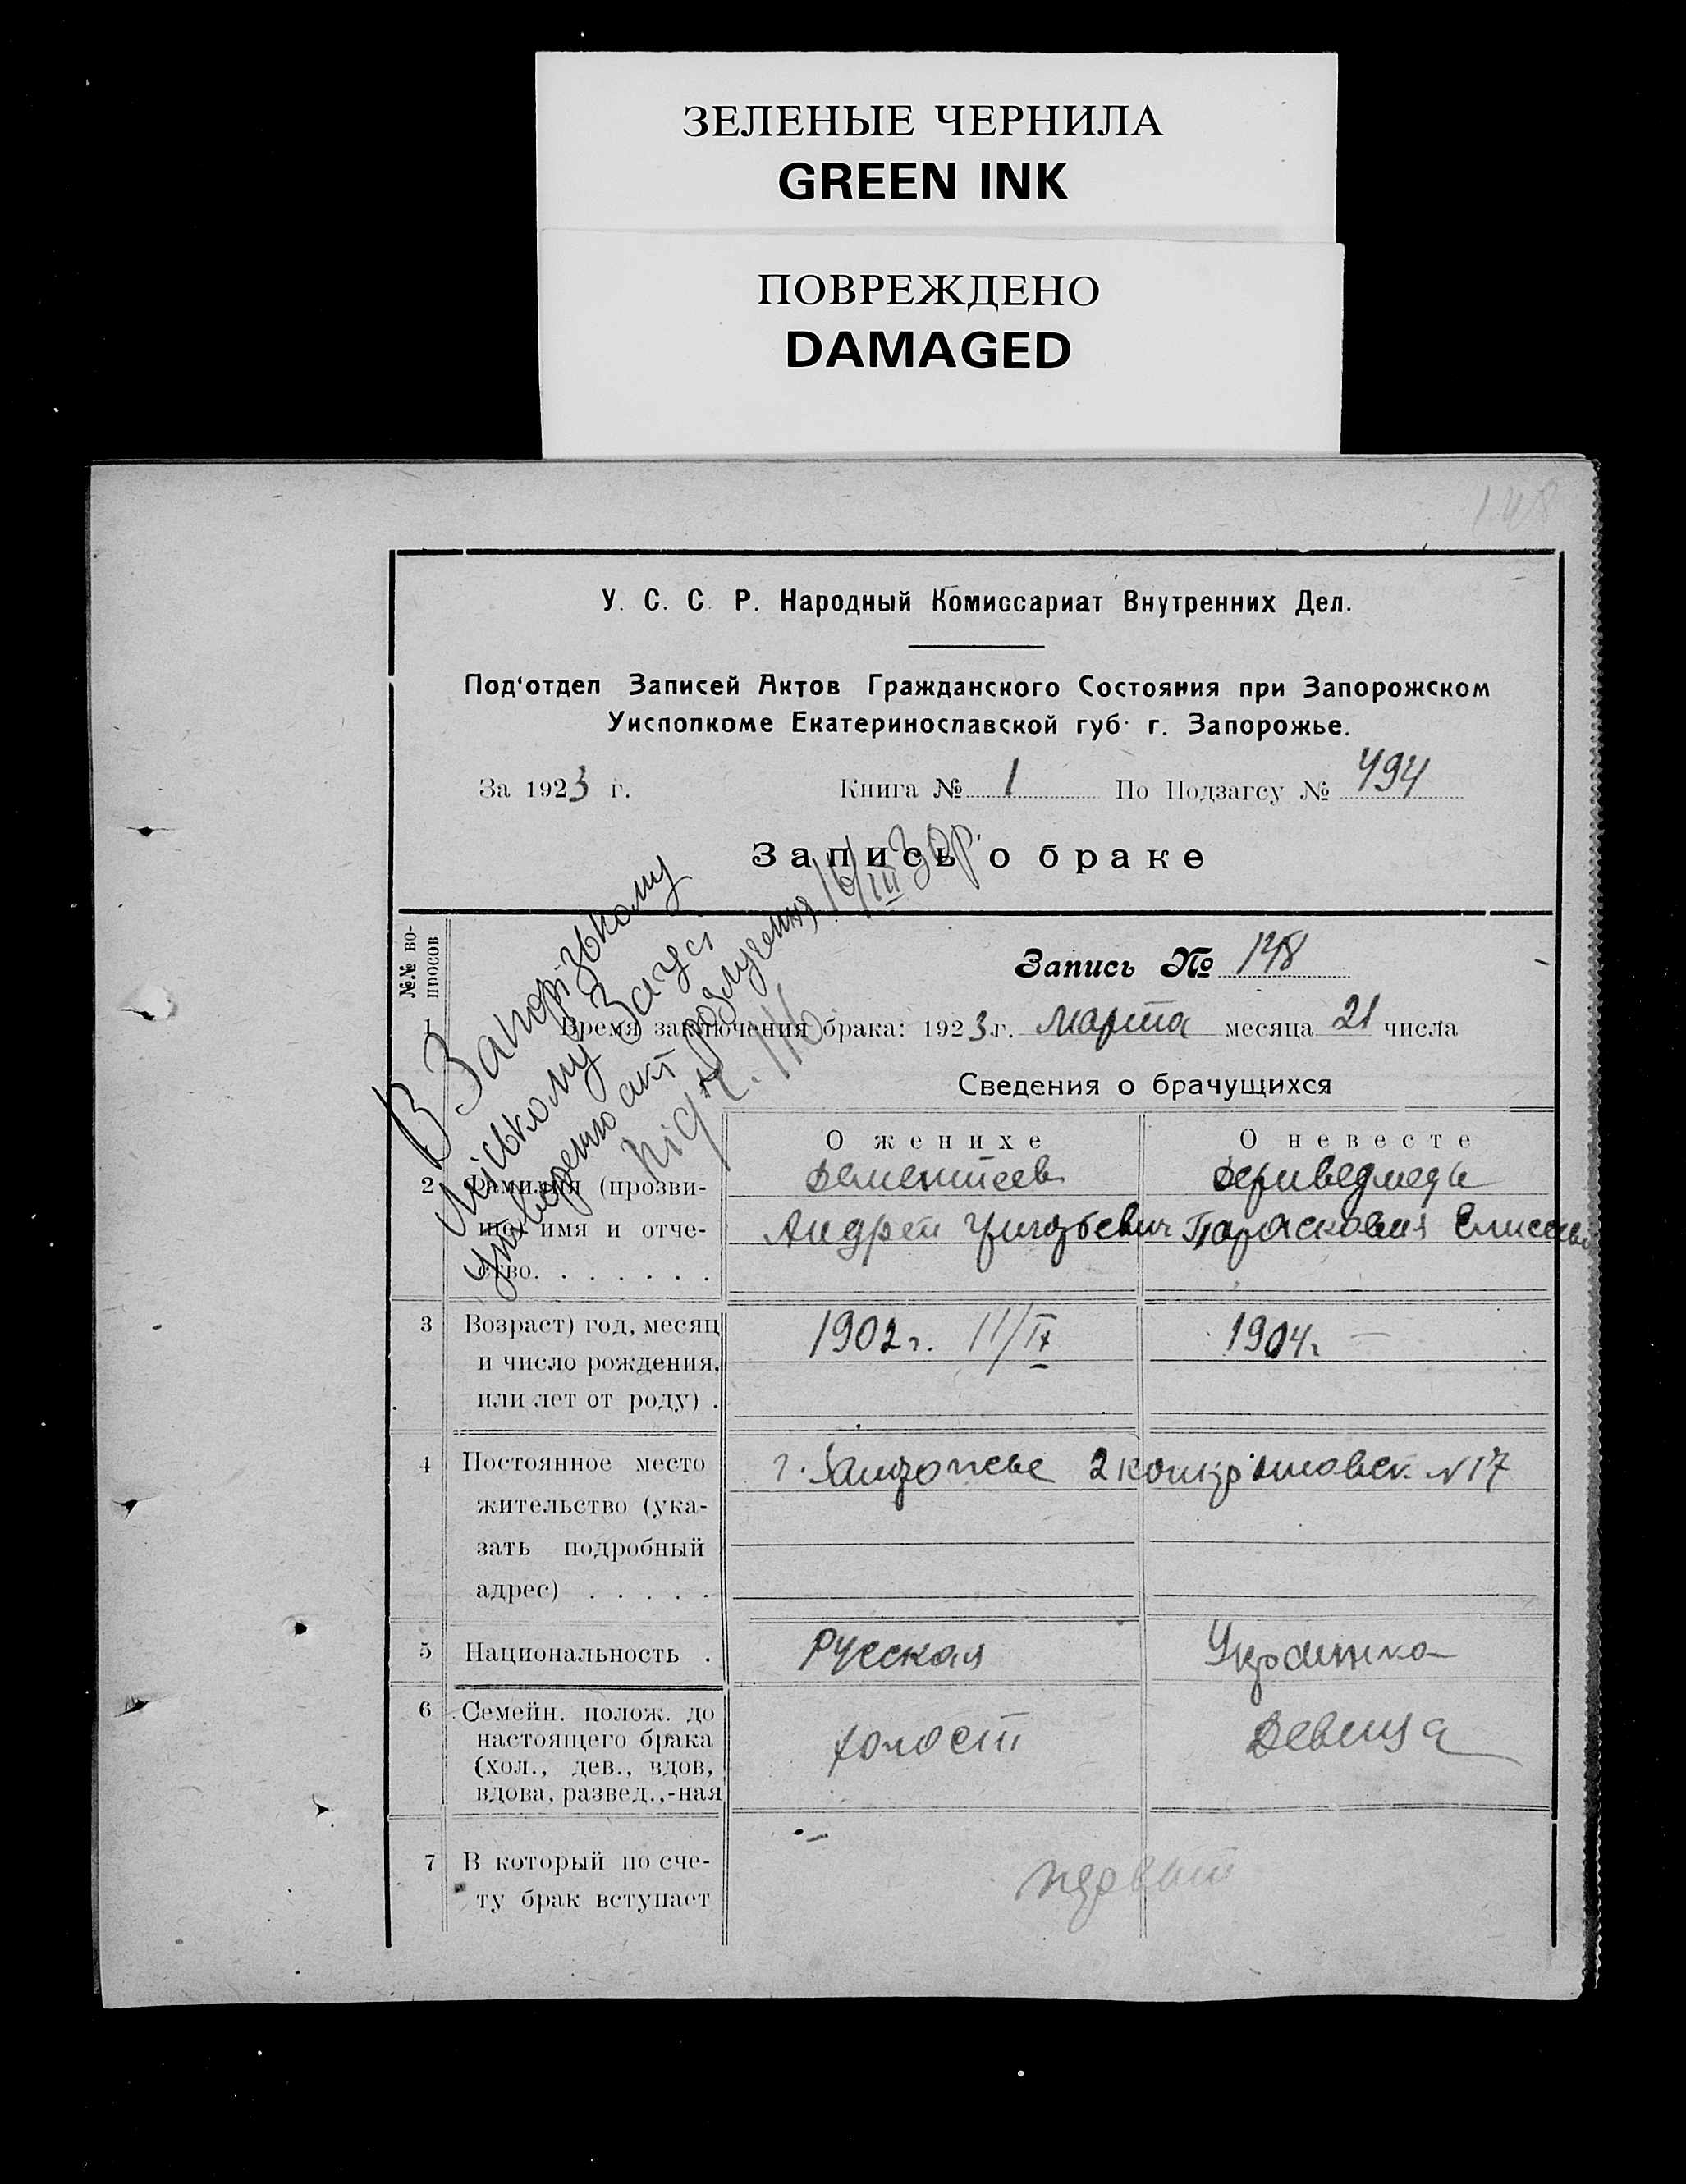 ЗЕЛЕНЫЕ ЧЕРНИЛА
GREEN INK
ПОВРЕЖДЕНО
DAMAGED
148
У. С. С. Р. Народный Комиссариат Внутренних Дел.
Под'отдел Записей Актов Гражданского Состояния при Запорожском
Уисполкоме Екатеринославской губ. г. Запорожье.
За 1923 г. Книга № 1 По Подзагсу № 494
Запись о браке
В Запорізькому
Міському Загсі
утворенно акт розлучення 16/III 30р
під № 116
№№ во-
просов
Запись № 148
1 Время заключения брака: 1923 г. марта месяца 21 числа
Сведения о брачущихся
О женихе О невесте
2 Фамилия (прозви-
ще) имя и отче-
ство. . . . . . .
Дементеев
Андрей Григорьевич
Парасковия
3 Возраст) год, месяц
и число рождения,
или лет от роду) .
1902 г. 11/IX 1904 г
4 Постоянное место
жительство (ука-
зать подробный
адрес) . . . . .
г. Запорожье 2 N 17
5 Национальность . Русская Украинка
6 Семейн. полож. до
настоящего брака
(хол., дев., вдов,
вдова, развед.,-ная
холост Девица
7 В который по сче-
ту брак вступает
первый